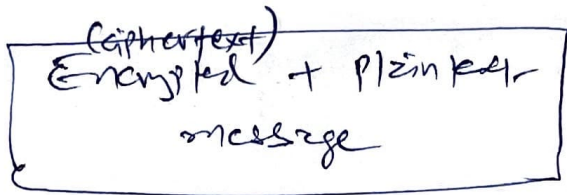 (ciphertext)
Encrypted + Plain
message